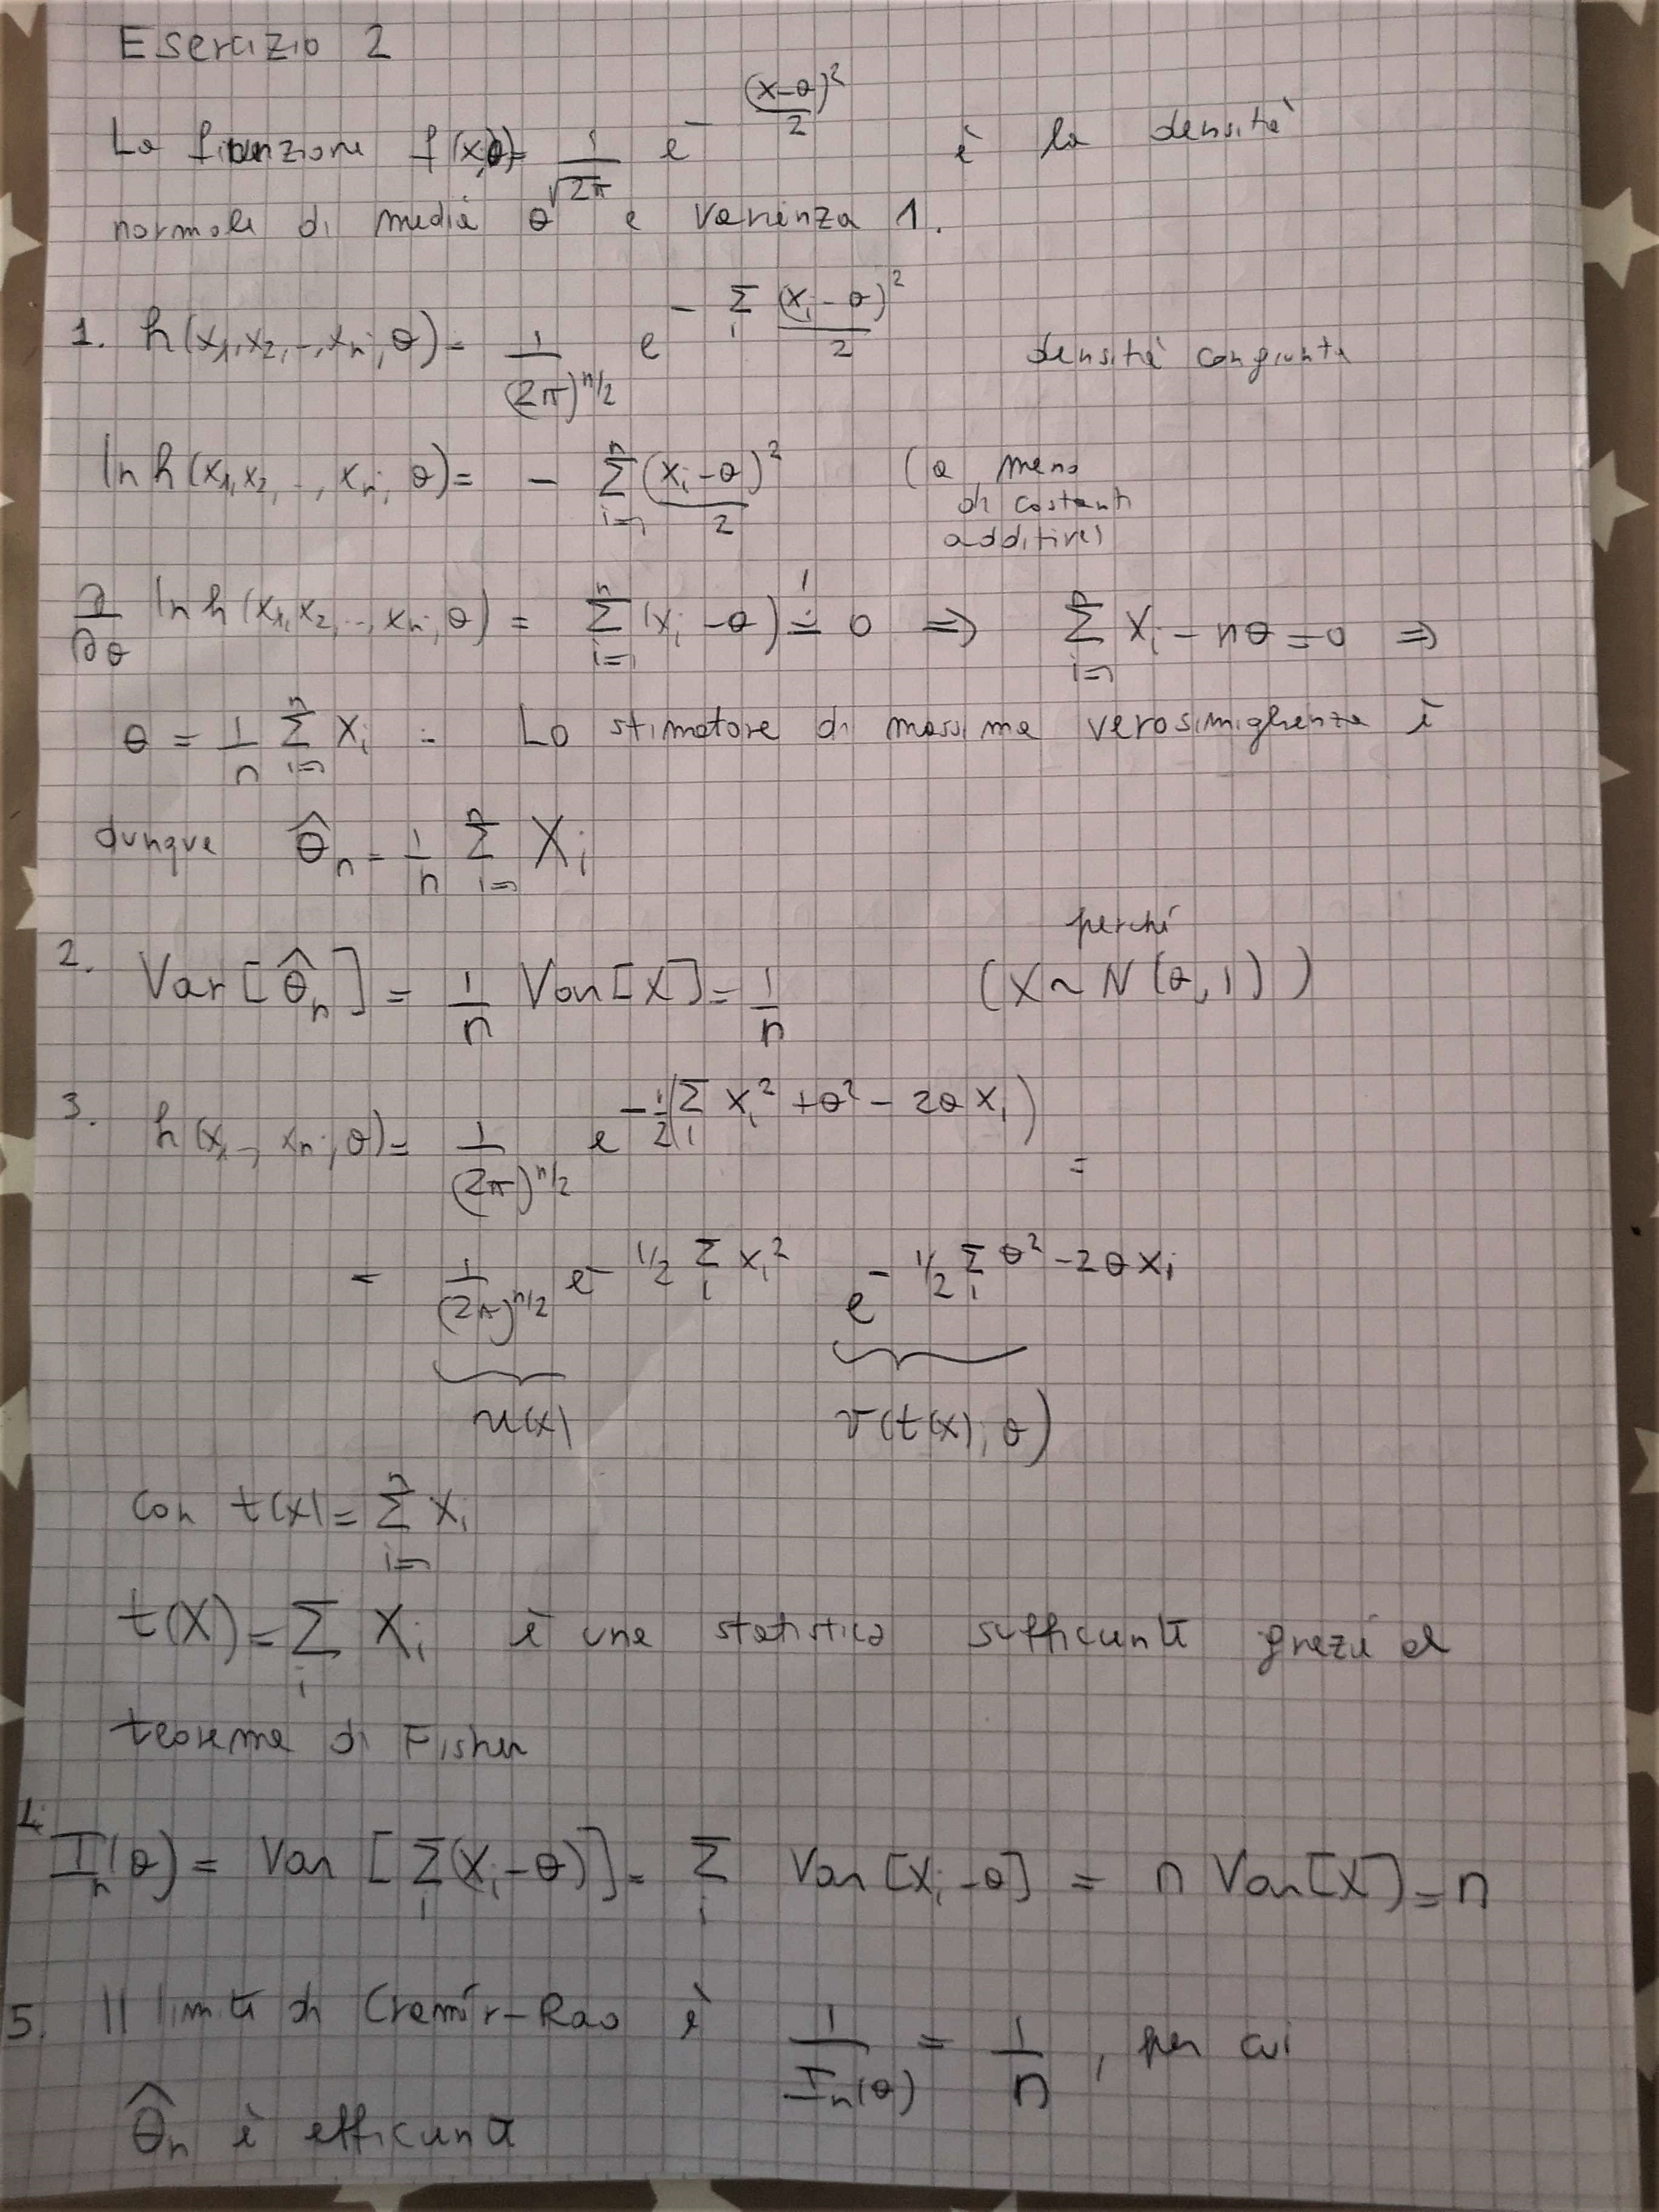 Esercizio 2
La funzione f(x;θ) = 1/√2π e^-(x-θ)²/2 è la densità
normale di media θ e varianza 1.
1. h(x₁,x₂,..,xₙ;θ) = 1/(2π)^n/2 e^-Σᵢ(xᵢ-θ)²/2 densità congiunta
ln h(x₁,x₂,..,xₙ;θ) = - Σᵢ₌₁ⁿ (xᵢ-θ)²/2 (a meno
di costanti
additive)
∂/∂θ ln h(x₁,x₂,..,xₙ;θ) = Σᵢ₌₁ⁿ (xᵢ-θ) =! 0 ⇒ Σᵢ₌₁ⁿ xᵢ - nθ = 0 ⇒
θ = 1/n Σᵢ₌₁ⁿ xᵢ . Lo stimatore di massima verosimiglianza è
dunque θ̂ₙ = 1/n Σᵢ₌₁ⁿ Xᵢ
perché
2. Var[θ̂ₙ] = 1/n Var[X] = 1/n (X~N(θ,1))
3. h(x₁,..,xₙ;θ) = 1/(2π)^n/2 e^-1/2(Σᵢ xᵢ²+θ²-2θxᵢ) =
= 1/(2π)^n/2 e^-1/2 Σᵢ xᵢ² e^-1/2 Σᵢ θ²-2θxᵢ
u(x) v(t(x);θ)
con t(x) = Σᵢ₌₁ⁿ xᵢ
t(X) = Σᵢ Xᵢ è una statistica sufficiente grazie al
teorema di Fisher
4. Iₙ(θ) = Var[Σᵢ(Xᵢ-θ)] = Σᵢ Var[Xᵢ-θ] = n Var[X] = n
5. Il limite di Cramér-Rao è 1/Iₙ(θ) = 1/n , per cui
θ̂ₙ è efficiente